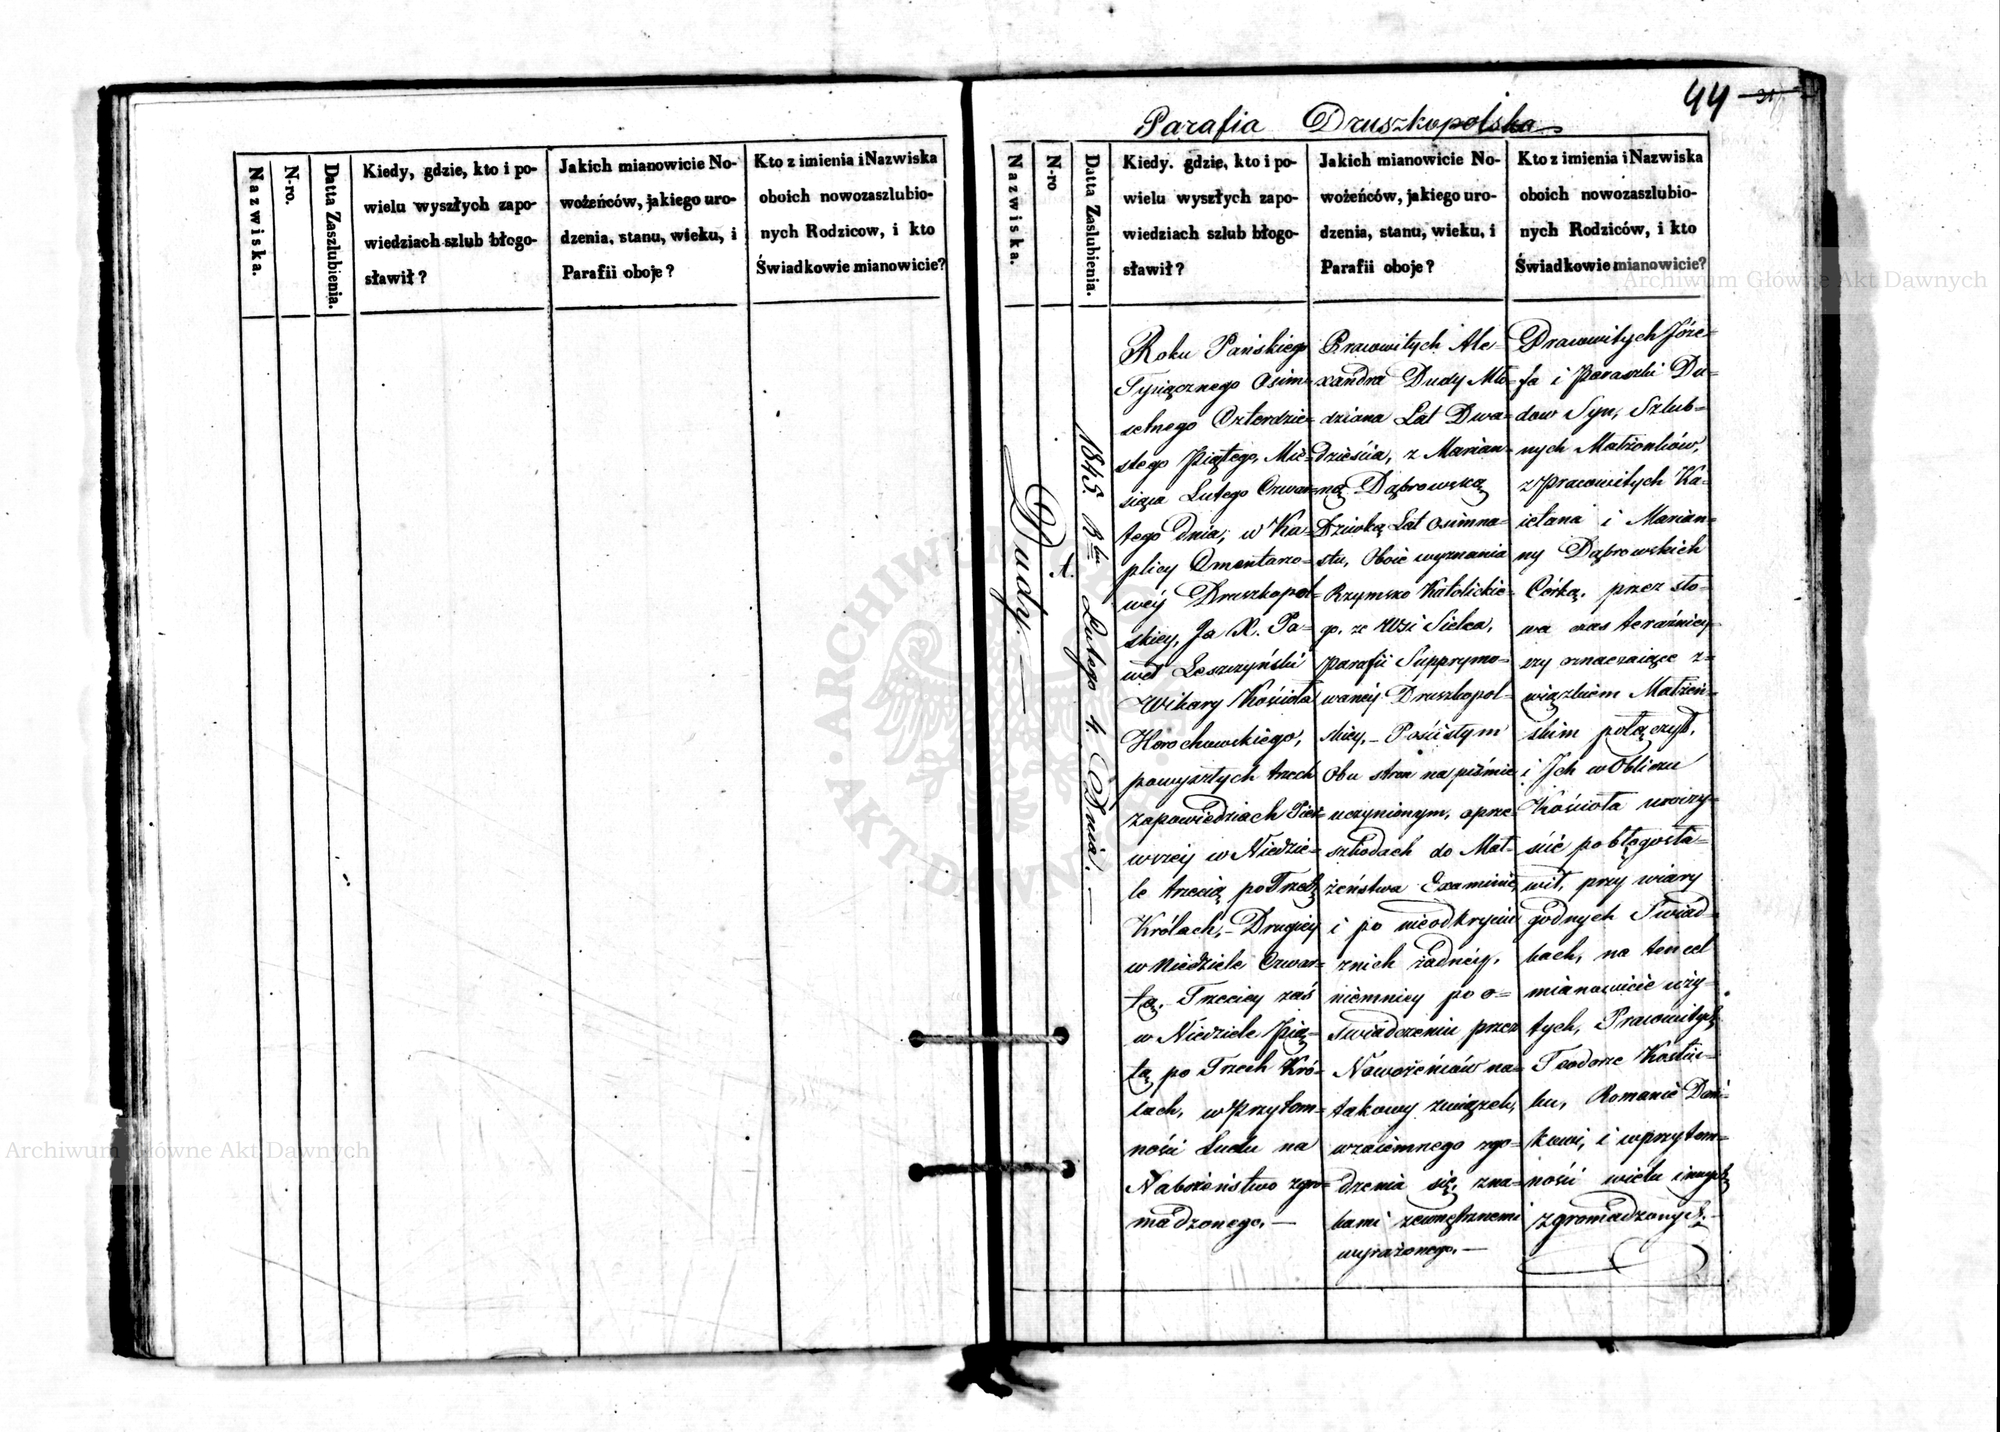 44
Parafia Druszkopolska
Nazwiska.
N-ro.
Datta Zaszlubienia.
Kiedy, gdzie, kto i po-
wielu wyszłych zapo-
wiedziach szlub błogo-
sławił?
Jakich mianowicie No-
wożeńców, jakiego uro-
dzenia, stanu, wieku, i
Parafii oboje?
Kto z imienia i Nazwiska
oboich nowozaszlubio-
nych Rodzicow, i kto
Świadkowie mianowicie?
Nazwiska.
N-ro
Datta Zaslubienia.
Kiedy. gdzie, kto i po-
wielu wyszłych zapo-
wiedziach szlub błogo-
sławił?
Jakich mianowicie No-
wożeńców, jakiego uro-
dzenia, stanu, wieku, i
Parafii oboje?
Kto z imienia i Nazwiska
oboich nowozaszlubio-
nych Rodziców, i kto
Świadkowie mianowicie?
Dudy.
1.
1845. Lutego 4. Dnia.
Roku Pańskiego
Tysiącznego Osim=
setnego Czterdzie=
stego Piątego, Mie=
siąca Lutego Czwar=
tego dnia, w Ka=
plicy Cmentarzo=
wéy Druszkopol=
skiey, Ja X. Pa=
weł Leszczyński
Wikary Kościoła
Horochowskiego,
powyszłych trzech
zapowiedziach Pier=
wszey w Niedzie=
le trzecią po Trzech
Królach, – Drugiey
w Niedziele Czwar=
tą, Trzeciey zaś
w Niedziele Pią=
tą po Trzech Kró=
lach, w Przytom=
ności Ludu na
Nabożeństwo zgro=
madzonego. —
Pracowitych Ale=
xandra Dudy Mło=
dziana Lat Dwa=
dzieścia, z Marian=
ną Dąbrowską
Dziewką Lat Osimna=
stu, Oboie wyznania
Rzymsko Katolickie=
go, ze Wsi Sielca,
Parafii Supprymo=
wanéy Druszkopol=
skiey, – Po ścisłym
Obu stron na piśmie
uczynionym, o prze=
szkodach do Mał=
żeństwa Examinie,
i po nieodkryciu
z nich żadnéy,
niemniey po o=
świadczeniu przez
Nowożeńców na
takowy związek,
wzaiemnego zgo=
dzenia się, zna=
kami zewnętrznemi
wyrażonego. —
Pracowitych Józe=
fa i Paraszki Du=
dow Syn, Szlub=
nych Małżonków,
z Pracowitych Ka=
ietana i Marian=
ny Dąbrowskich
Córką, przez sło=
wa czas teraźniey=
szy oznaczaiące z=
wiązkiem Małżeń=
skim połączył,
i Ich w Obliczu
Kościoła uroczy=
ście pobłogosła=
wił, przy wiary
godnych Świad=
kach, na ten cel
mianowicie uży=
tych, Pracowitych
Teodorze Kostiu=
ku, Romanie
i w przytom=
ności wielu innych
zgromadzonych. —
Archiwum Główne Akt Dawnych
Archiwum Główne Akt Dawnych